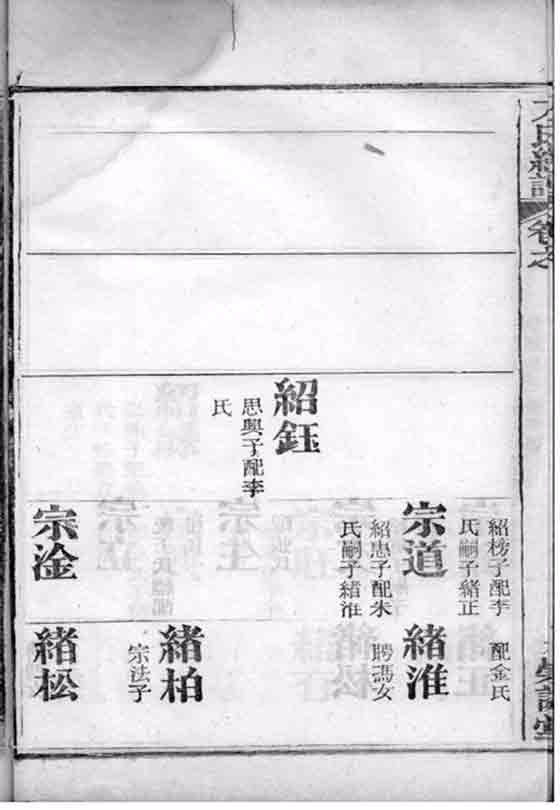 卷之
紹鈺
思興子配李
氏
紹榜子配李
氏嗣子緒正
宗道
紹惠子配朱
氏嗣子緒淮
宗淦
配金氏
緒淮
聘馮女
緒柏
宗法子
緒松